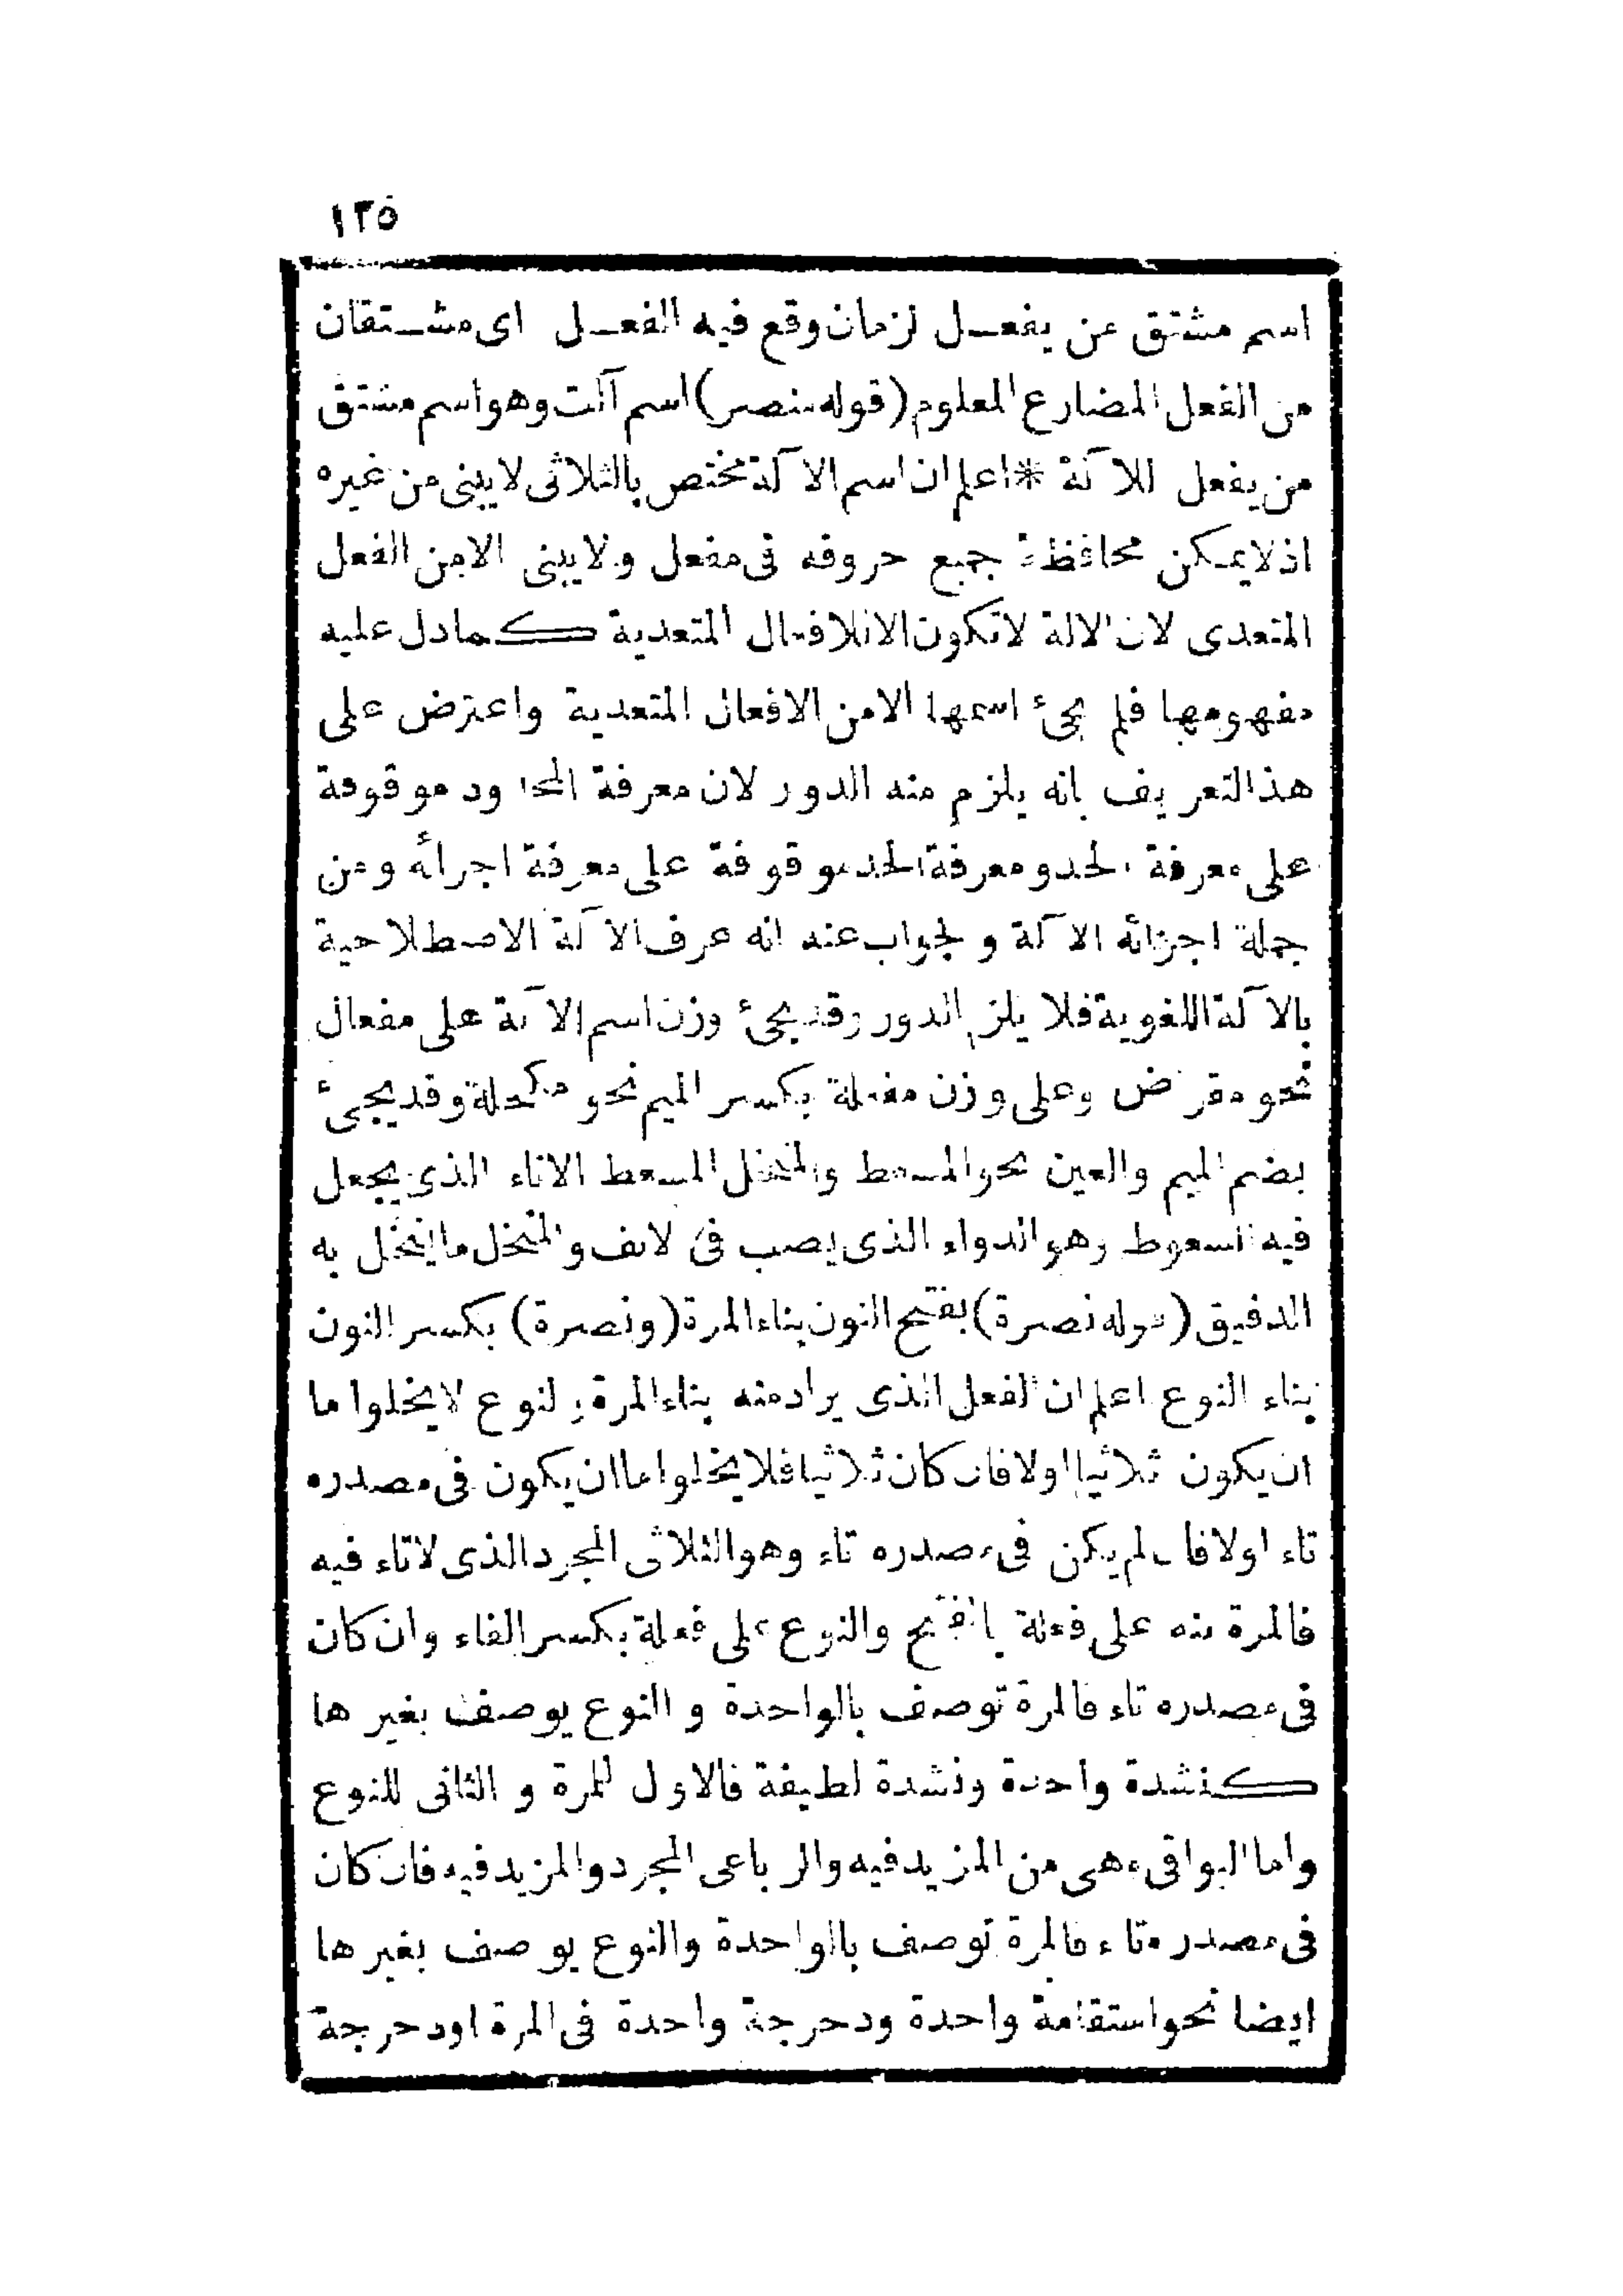 ١٢٥
اسم مشتق من يفعـل لزمان وقع فيه الفعـل اى مشـتقان
من الفعل المضارع المعلوم (قوله منصر) اسم آلت وهو اسم مشتق
من يفعل للآلة * اعلم ان اسم الآلة مختص بالثلاثى لا يبنى من غيره
اذ لا يمكن محافظة جميع حروفه فى مفعل ولا يبنى الا من الفعل
المتعدى لان الالة لا تكون الا للافعال المتعدية كما دل عليه
مفهومها فلم يجئ اسمها الا من الافعال المتعدية واعترض على
هذ التعريف بانه يلزم منه الدور لان معرفة المحدود موقوفة
على معرفة الحد ومعرفة الحد موقوفة على معرفة اجرائه ومن
جملة اجزائه الآلة والجواب عنه انه عرف الآلة الاصطلاحية
بالآلة اللغوية فلا يلزم الدور وقد يجئ وزن اسم الآلة على مفعال
نحو مقراض وعلى وزن مفعلة بكسر الميم نحو مكحلة وقد يجئ
بضم الميم والعين نحو المسعط والمنخل المسعط الاناء الذى يجعل
فيه السعوط وهو الدواء الذى يصب فى الانف والمنخل ما ينخل به
الدقيق (قوله نصرة) بفتح النون بناء المرة (ونصرة) بكسر النون
بناء النوع اعلم ان الفعل الذى يراد منه بناء المرة والنوع لا يخلوا ما
ان يكون ثلاثيا اولا فان كان ثلاثيا فلا يخلوا ما ان يكون فى مصدره
تاء اولا فان لم يكن فى مصدره تاء وهو الثلاثى المجرد الذى لا تاء فيه
فالمرة منه على فعلة بالفتح والنوع على فعلة بكسر الفاء وان كان
فى مصدره تاء فالمرة توصف بالواحدة و النوع يوصف بغيرها
كنشدة واحدة ونشدة لطيفة فالاول للمرة و الثانى للنوع
واما البواقى وهى من المزيد فيه والرباعى المجرد والمزيد فيه فان كان
فى مصدره تاء فالمرة توصف بالواحدة والنوع يوصف بغيرها
ايضا نحو استقامة واحدة ودحرجة واحدة فى المرة او دحرجة